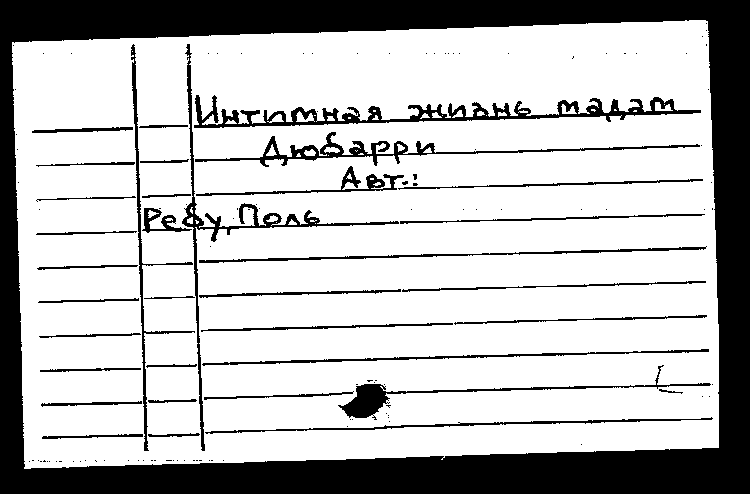 Интимная жизнь мадам
Дюбарри
Авт.:
Ребу, Поль